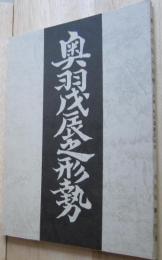 奥羽戊辰之形勢